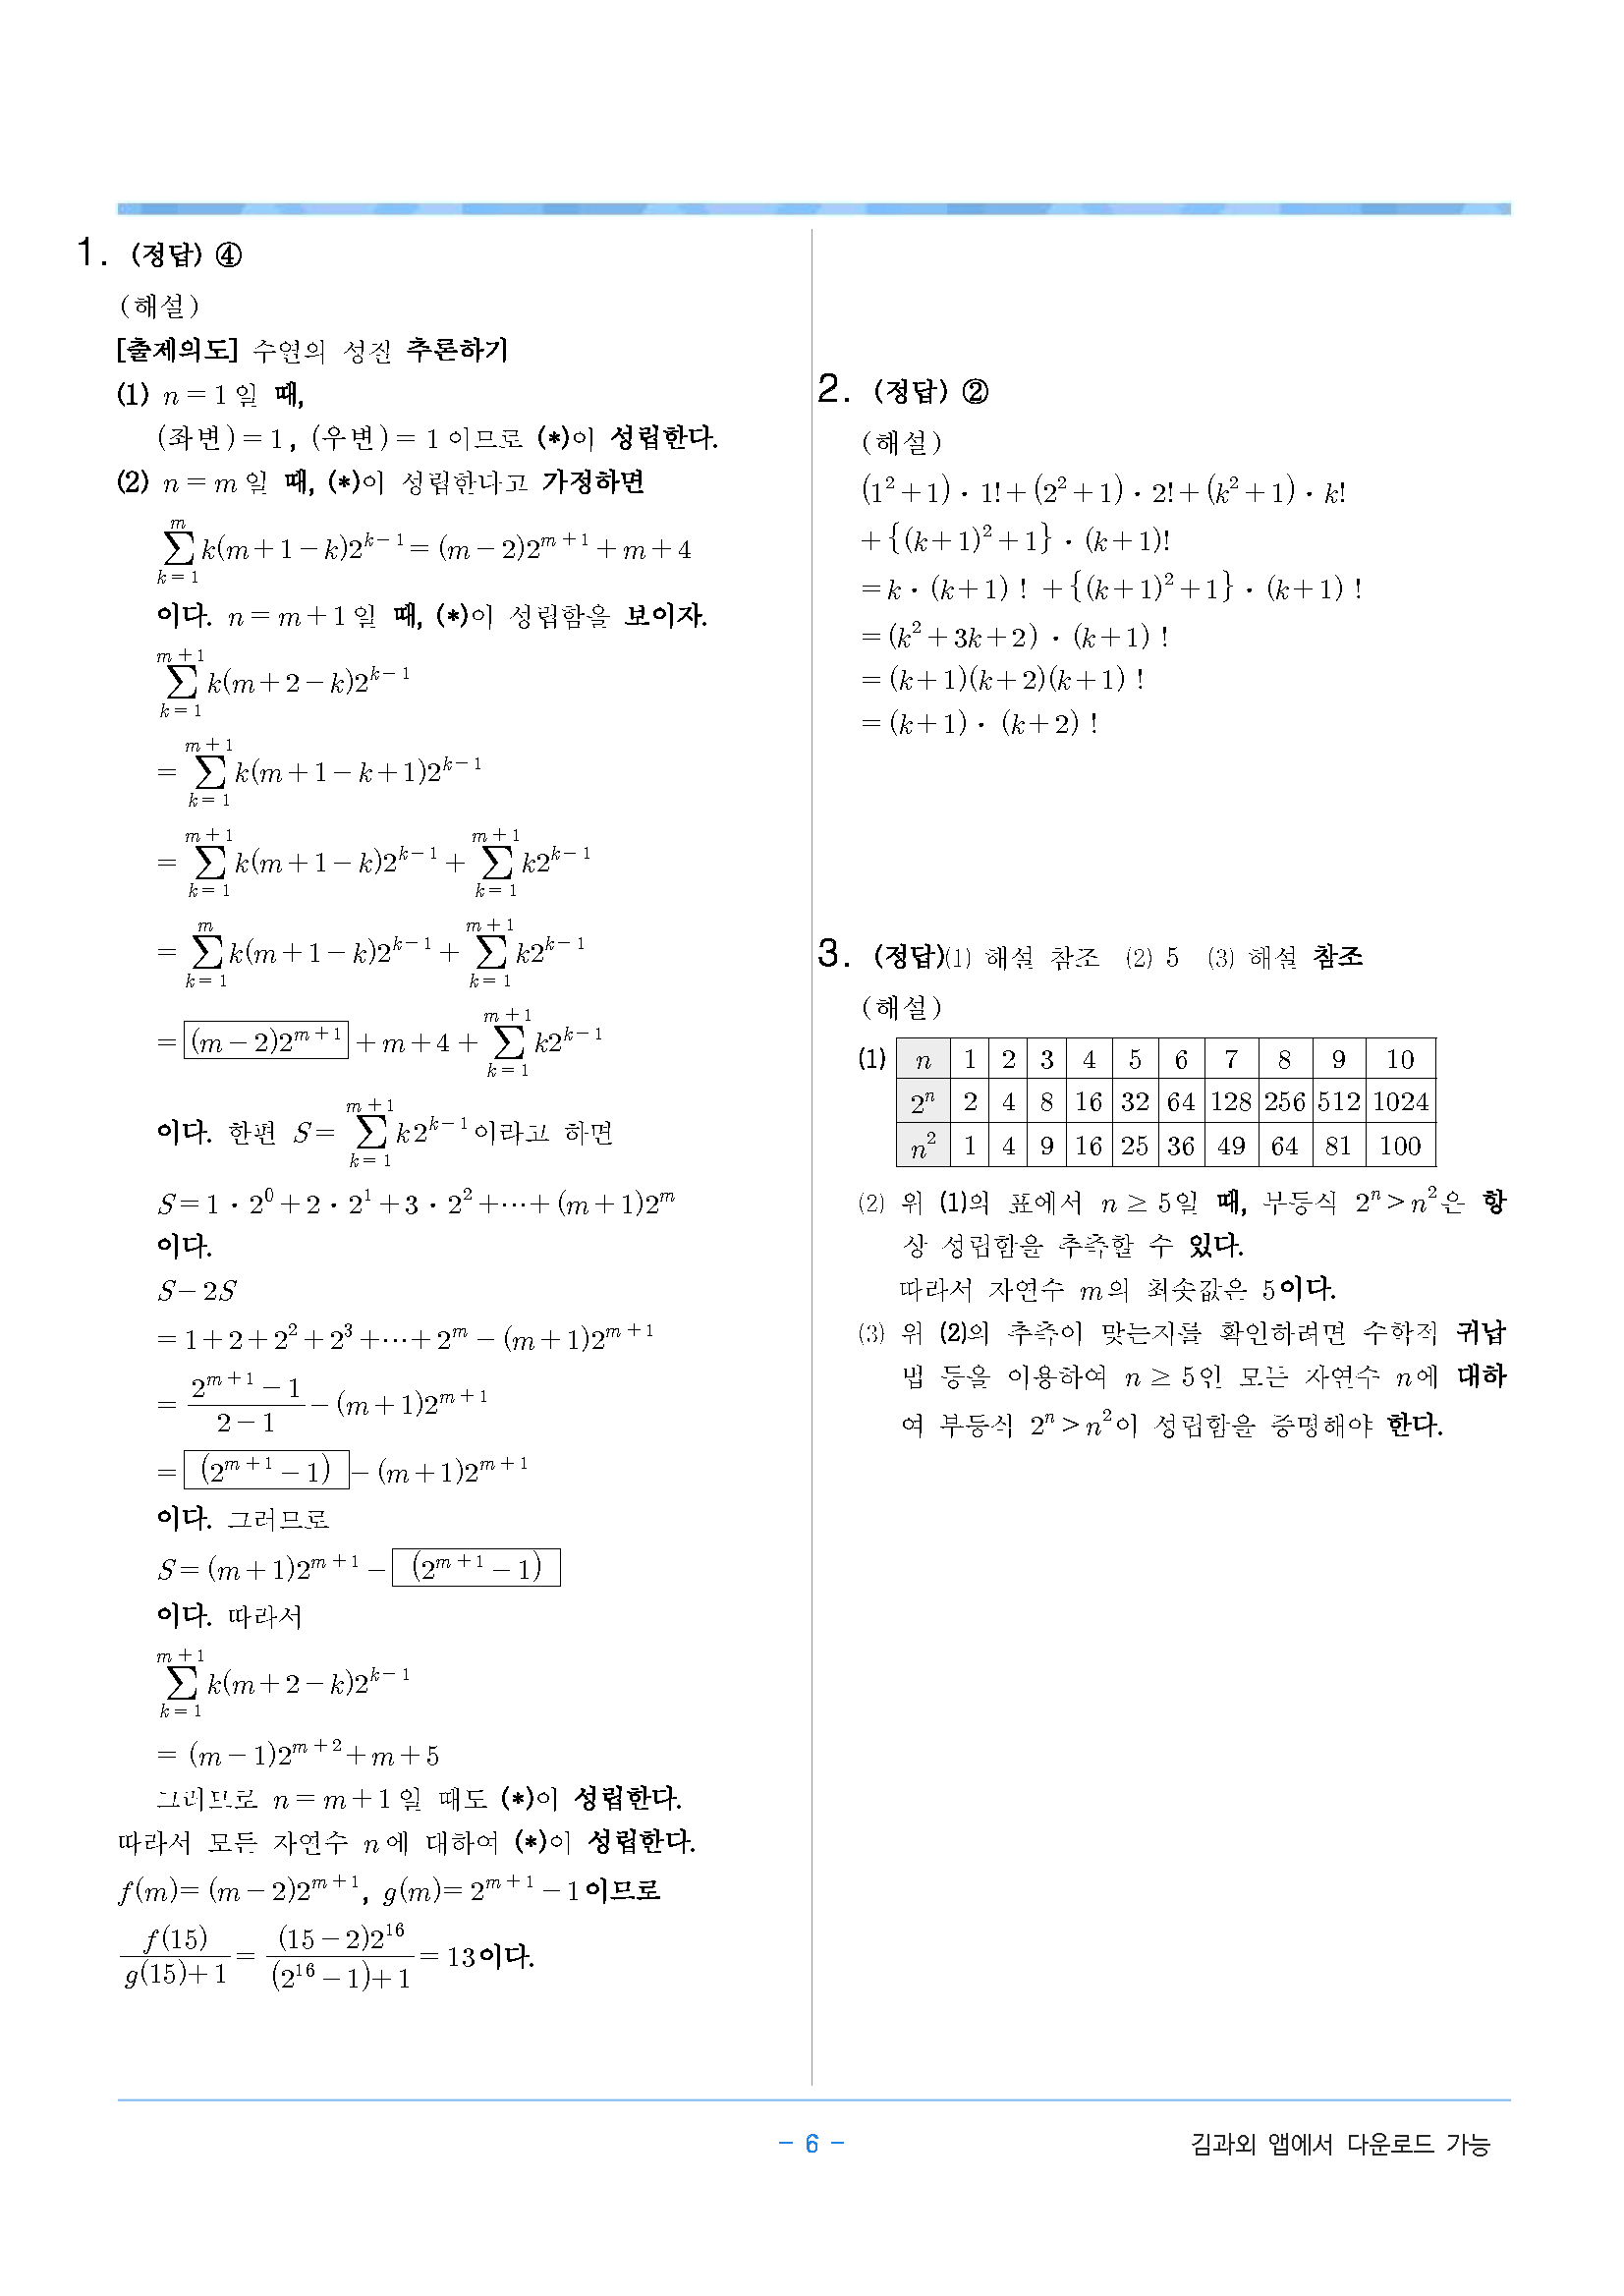 1. (정답) ④
(해설)
[출제의도] 수열의 성질 추론하기
(1) n = 1일 때,
(좌변) = 1, (우변) = 1이므로 (*)이 성립한다.
(2) n = m일 때, (*)이 성립한다고 가정하면
∑_{k=1}^{m} k(m+1-k)2^{k-1} = (m-2)2^{m+1} + m + 4
이다. n = m+1일 때, (*)이 성립함을 보이자.
∑_{k=1}^{m+1} k(m+2-k)2^{k-1}
= ∑_{k=1}^{m+1} k(m+1-k+1)2^{k-1}
= ∑_{k=1}^{m+1} k(m+1-k)2^{k-1} + ∑_{k=1}^{m+1} k2^{k-1}
= ∑_{k=1}^{m} k(m+1-k)2^{k-1} + ∑_{k=1}^{m+1} k2^{k-1}
= (m-2)2^{m+1} + m + 4 + ∑_{k=1}^{m+1} k2^{k-1}
이다. 한편 S = ∑_{k=1}^{m+1} k2^{k-1}이라고 하면
S = 1·2^0 + 2·2^1 + 3·2^2 + ⋯ + (m+1)2^m
이다.
S - 2S
= 1 + 2 + 2^2 + 2^3 + ⋯ + 2^m - (m+1)2^{m+1}
= \frac{2^{m+1}-1}{2-1} - (m+1)2^{m+1}
= (2^{m+1}-1) - (m+1)2^{m+1}
이다. 그러므로
S = (m+1)2^{m+1} - (2^{m+1}-1)
이다. 따라서
∑_{k=1}^{m+1} k(m+2-k)2^{k-1}
= (m-1)2^{m+2} + m + 5
그러므로 n = m+1일 때도 (*)이 성립한다.
따라서 모든 자연수 n에 대하여 (*)이 성립한다.
f(m) = (m-2)2^{m+1}, g(m) = 2^{m+1} - 1이므로
\frac{f(15)}{g(15)+1} = \frac{(15-2)2^{16}}{(2^{16}-1)+1} = 13이다.
2. (정답) ②
(해설)
(1^2+1)·1! + (2^2+1)·2! + (k^2+1)·k!
+ {(k+1)^2+1}·(k+1)!
= k·(k+1)! + {(k+1)^2+1}·(k+1)!
= (k^2+3k+2)·(k+1)!
= (k+1)(k+2)(k+1)!
= (k+1)·(k+2)!
3. (정답)(1) 해설 참조 (2) 5 (3) 해설 참조
(해설)
(1) n 1 2 3 4 5 6 7 8 9 10
2^n 2 4 8 16 32 64 128 256 512 1024
n^2 1 4 9 16 25 36 49 64 81 100
(2) 위 (1)의 표에서 n ≥ 5일 때, 부등식 2^n > n^2은 항
상 성립함을 추측할 수 있다.
따라서 자연수 m의 최솟값은 5이다.
(3) 위 (2)의 추측이 맞는지를 확인하려면 수학적 귀납
법 등을 이용하여 n ≥ 5인 모든 자연수 n에 대하
여 부등식 2^n > n^2이 성립함을 증명해야 한다.
- 6 -
김과외 앱에서 다운로드 가능